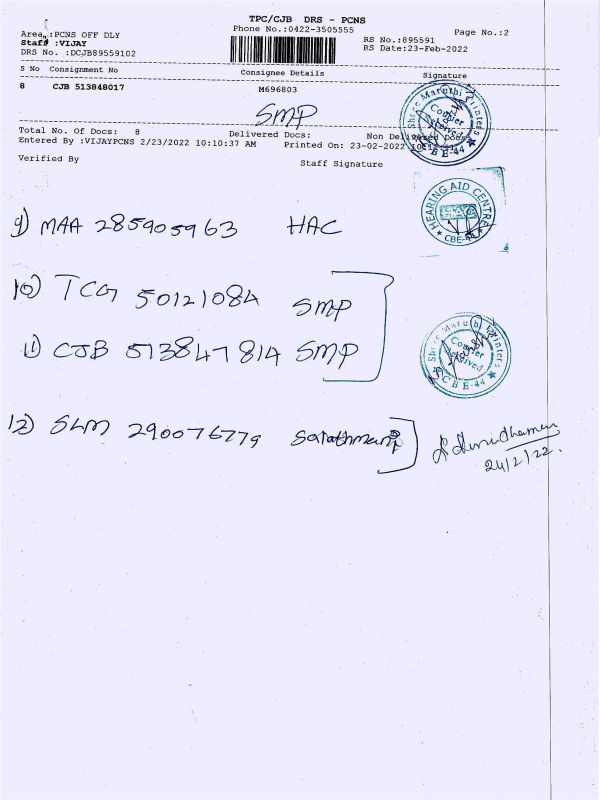 TPC/CJB DRS - PCNS
Phone No.:0422-3505555
Page No.:2
Area :PCNS OFF DLY
Staff :VIJAY
DRS No. :DCJB89559102
RS No.:895591
RS Date:23-Feb-2022
S No Consignment No Consignee Details Signature
8 CJB 513848017 M696803
SMP
Shree Maruthi Printers
Courier
Received
CBE-44
Total No. Of Docs: 8 Delivered Docs: Non Delivered Docs:
Entered By :VIJAYPCNS 2/23/2022 10:10:37 AM Printed On: 23-02-2022
Verified By Staff Signature
HEARING AID CENTRE
CBE-44
9) MAA 285905963 HAC
10) TCG 50121084 SMP
11) CJB 513847814 SMP
Shree Maruthi Printers
Courier
Received
CBE-44
12) SLM 290076779
24/2/22.